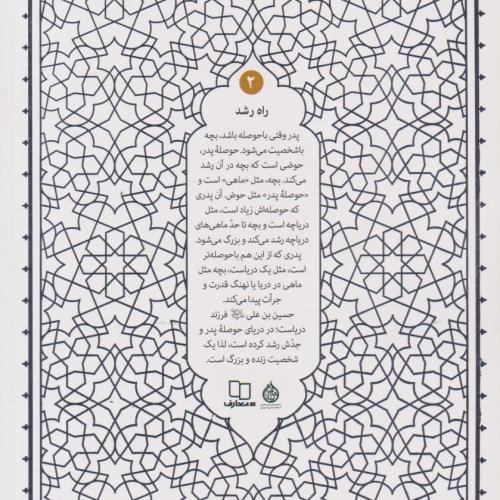 ۲
راه رشد
پدر وقتی باحوصله باشد، بچه
باشخصیت می‌شود. حوصلهٔ پدر،
حوضی است که بچه در آن رشد
می‌کند. بچه، مثل «ماهی» است و
«حوصلهٔ پدر» مثل حوض. آن پدری
که حوصله‌اش زیاد است، مثل
دریاچه است و بچه تا حدّ ماهی‌های
دریاچه رشد می‌کند و بزرگ می‌شود.
پدری که از این هم باحوصله‌تر
است، مثل یک دریاست، بچه مثل
ماهی در دریا یا نهنگ قدرت و
جرأت پیدا می‌کند.
حسین بن علی فرزند
دریاست؛ در دریای حوصلهٔ پدر و
جدّش رشد کرده است، لذا یک
شخصیت زنده و بزرگ است.
معارف